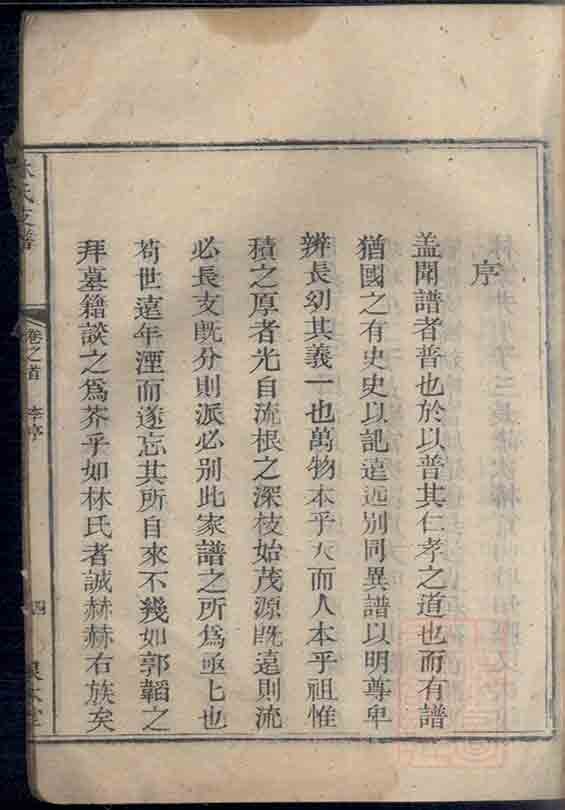 序
盖聞譜者普也於以普其仁孝之道也而有譜
猶國之有史史以記遠近別同異譜以明尊卑
辨長幼其義一也萬物本乎天而人本乎祖惟
積之厚者光自流根之深枝始茂源既遠則流
必長支既分則派必別此家譜之所為亟亟也
苟世遠年湮而遂忘其所自來不幾如郭韜之
拜墓籍談之為芥乎如林氏者誠赫赫右族矣
林氏支譜
卷之首
李序
四